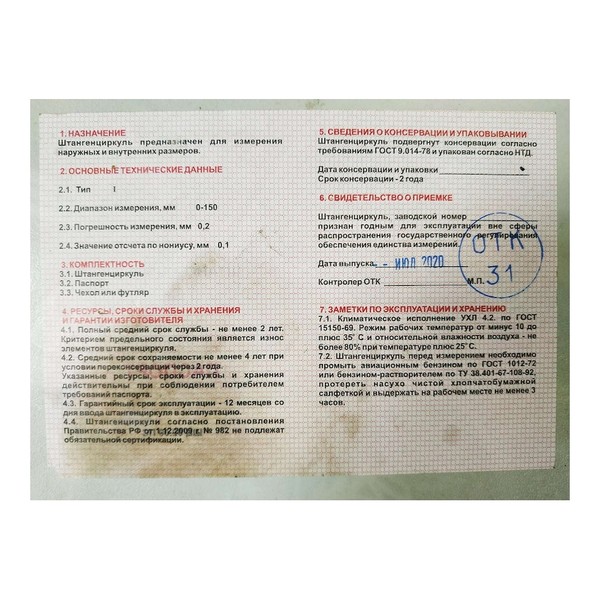 1. НАЗНАЧЕНИЕ
Штангенциркуль предназначен для измерения
наружных и внутренних размеров.
2. ОСНОВНЫЕ ТЕХНИЧЕСКИЕ ДАННЫЕ
2.1. Тип I
2.2. Диапазон измерения, мм 0-150
2.3. Погрешность измерения, мм 0,2
2.4. Значение отсчета по нониусу, мм 0,1
3. КОМПЛЕКТНОСТЬ
3.1. Штангенциркуль
3.2. Паспорт
3.3. Чехол или футляр
4. РЕСУРСЫ, СРОКИ СЛУЖБЫ И ХРАНЕНИЯ
И ГАРАНТИИ ИЗГОТОВИТЕЛЯ
4.1. Полный средний срок службы - не менее 2 лет.
Критерием предельного состояния является износ
элементов штангенциркуля.
4.2. Средний срок сохраняемости не менее 4 лет при
условии переконсервации через 2 года.
Указанные ресурсы, сроки службы и хранения
действительны при соблюдении потребителем
требований паспорта.
4.3. Гарантийный срок эксплуатации - 12 месяцев со
дня ввода штангенциркуля в эксплуатацию.
4.4. Штангенциркули согласно постановления
Правительства РФ от 1.12.2009 г. № 982 не подлежат
обязательной сертификации.
5. СВЕДЕНИЯ О КОНСЕРВАЦИИ И УПАКОВЫВАНИИ
Штангенциркуль подвергнут консервации согласно
требованиям ГОСТ 9.014-78 и упакован согласно НТД.
Дата консервации и упаковки
Срок консервации - 2 года
6. СВИДЕТЕЛЬСТВО О ПРИЕМКЕ
Штангенциркуль, заводской номер
признан годным для эксплуатации вне сферы
распространения государственного регулирования
обеспечения единства измерений.
Дата выпуска - ИЮЛ 2020
Контролер ОТК М.П.
ОТК
31
7. ЗАМЕТКИ ПО ЭКСПЛУАТАЦИИ И ХРАНЕНИЮ
7.1. Климатическое исполнение УХЛ 4.2. по ГОСТ
15150-69. Режим рабочих температур от минус 10 до
плюс 35° С и относительной влажности воздуха - не
более 80% при температуре плюс 25° С.
7.2. Штангенциркуль перед измерением необходимо
промыть авиационным бензином по ГОСТ 1012-72
или бензином-растворителем по ТУ 38.401-67-108-92,
протереть насухо чистой хлопчатобумажной
салфеткой и выдержать на рабочем месте не менее 3
часов.